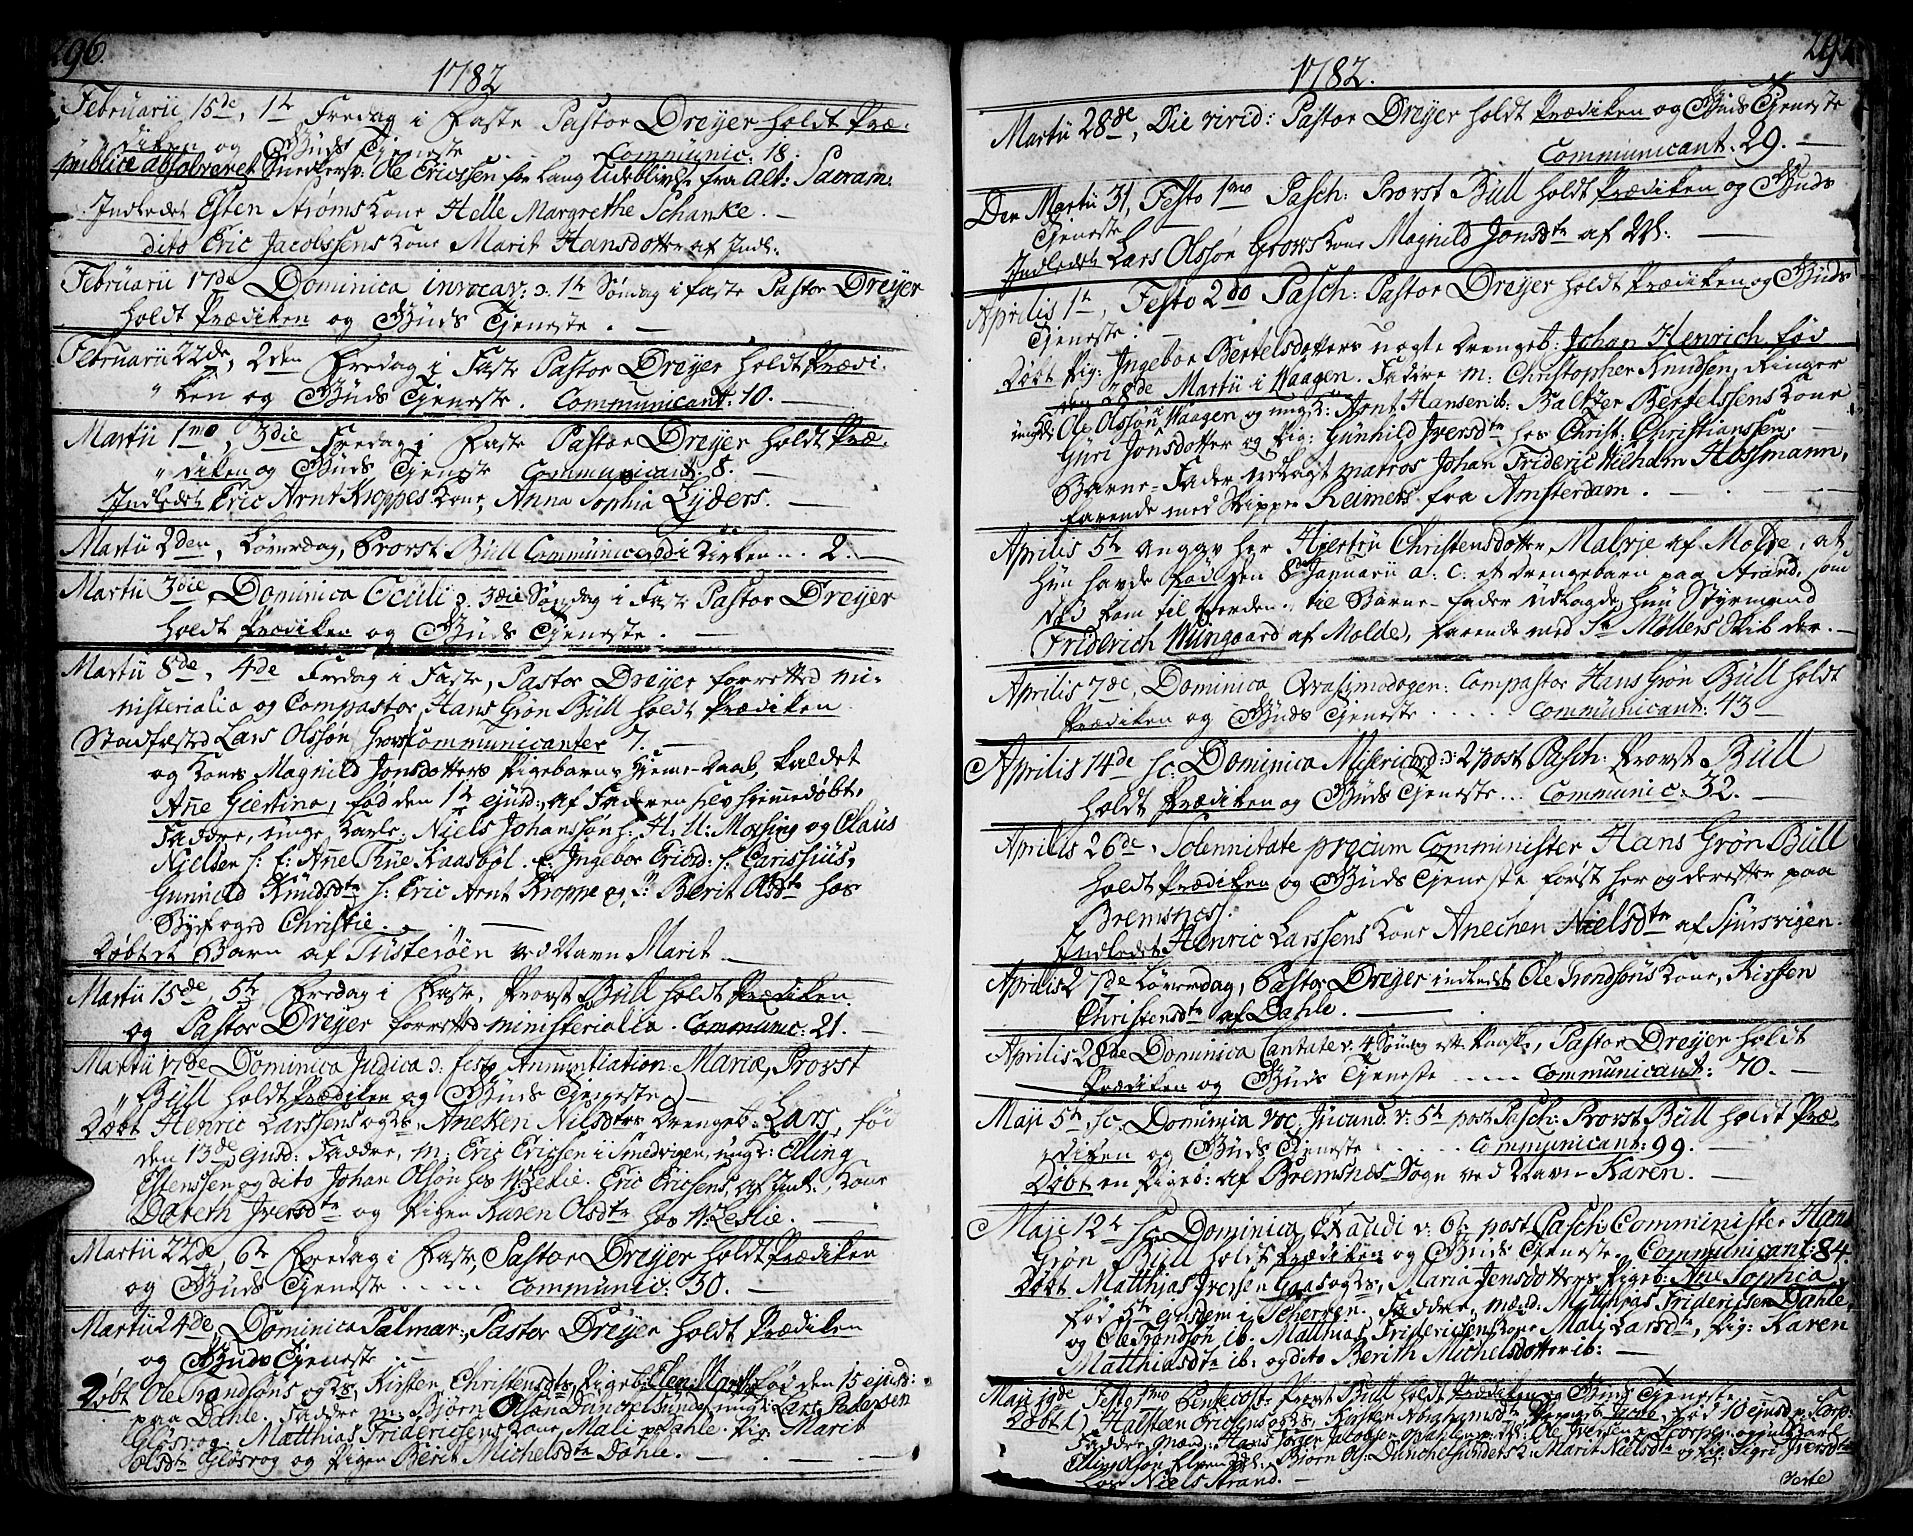 296.
1782
Februarii 15de, 1te Fredag i Faste Pastor Dreyer holdt Præ-
diken og Guds Tjeneste Communic: 18.
publice absolveret Snedkersv: Ole Ericssen for lang Udeblivelse fra Alt: Sacram:
Indledet Esten Strøms Kone Helle Margrethe Schanke. -
dito Eric Jacobssens Kone Marit Hansdotter af Indl:
Februarii 17de Dominica invocav: ɔ: 1te Søndag i Faste Pastor Dreyer
holdt Prædiken og Guds Tjeneste. -
Februarii 22de, 2den Fredag i Faste Pastor Dreyer holdt Prædi-
" ken og Guds Tjeneste. Communicant: 10. -
Martii 1mo, 3die Fredag i Faste Pastor Dreyer holdt Præ-
" diken og Guds Tjeneste Communicant: 8. -
Indledet Eric Arnt Kroppes Kone, Anna Sophia Lyders. -
Martii 2den, Løverdag, Provst Büll Communicer: i Kirken .. 2. -
Martii 3die, Dominica Oculi ɔ: 3die Søndag i Faste Pastor Dreyer
holdt Prædiken og Guds Tjeneste. -
Martii 8de, 4de Fredag i Faste, Pastor Dreyer forretted mi-
nisterialia og Compastor Hans Grøn Büll holdt Prædiken.
Stadfæsted Lars Olssøn Grovs Communicanter 7. -
og Kones Magnild Jonsdotters Pigebarns Hjeme-Daab, kaldet
Ane Giertina, fød den 1te ejusd:, af Faderen selv hjemmedøbt.
Faddre, unge Karle, Niels Johanssøn h: H. U: Møsing og Claus
Nielsen h: f: Ane Tine Kaasbøl. f: Ingebor Ericsd: h: Carissius,
Gunnild Knudsdtr h: Eric Arnt Kroppe og Berit Olsdtr hos
Byefoged Christie. -
Døbt et Barn af Tusterøen ved Navn Marit -
Martii 15de, 5te Fredag i Faste, Provst Büll holdt Prædiken
og Pastor Dreyer forretted ministerialia. Communic: 21. -
Martii 17de Dominica Judica ɔ: festo Annuntiation: Mariæ, Provst
" Büll holdt Prædiken og Guds Tjeneste -
Døbt Henric Larssens og Ks Aneken Nilsdtrs Drengeb: Lars, fød
den 13de ejusd: Faddre, m: Eric Ericsen i Smedvigen, ungk: Elling
Estenssen og dito Johan Olsøn hos W: Leslie. Eric Ericsens, af Indl:, Kone
Dareth Iversdtr og Pigen Karen Olsdtr hos W: Leslie. -
Martii 22de, 6te Fredag i Faste, Pastor Dreyer holdt Prædiken
og Guds Tjeneste .... Communic: 30. -
Martii 24de, Dominica Palmar:, Pastor Dreyer holdt Prædiken
og Guds Tjeneste -
Døbt Ole Trondsøns og Ks, Kirsten Christensdtrs, Pigeb: Elen Marta fød den 15 ejusd:
paa Dahle. Faddre m: Bjørn Olsøn Dunckelsund, ungk: Lars Pedersen
Gløsvog. Matthias Friderichsens Kone, Mali paa Dahle. Pig: Marit
Olsdtr Gløsvog og Pigen Berit Michelsdtr Dahle. -
297
1782.
Martii 28de, Die virid: Pastor Dreyer holdt Prædiken og Guds Tjeneste
Communicant: 29. -
Den Martii 31, Festo 1mo Pasch: Provst Büll holdt Prædiken og Guds
Tjeneste
Indledet Lars Olssøn Grovs Kone Magnild Jonsdtr af Vl: -
Aprilis 1te, Festo 2do Pasch: Pastor Dreyer holdt Prædiken og Guds
Tjeneste. -
Døbt Pig: Ingebor Bertelsdotters uægte Drengeb: Johan Henrich, fød
den 28de Martii i Vaagen. Faddre m: Christopher Knudsen, Ringer
ungk: Ole Olssøn i Vaagen og ungk: Arnt Hansen ib: Baltzer Bertelssens Kone
Guri Jonsdotter og Pig: Gunhild Iversdtr hos Christ: Christianssen.
Barne-Fader udlagt matros Johan Frideric Wilhelm Hossmann,
farende med Skipper Reimers fra Amsterdam. -
Aprilis 5te angav sig Hiertru Christensdotter Malvje af Molde, at
hun havde fød den 8de Januarii a: c: et Drengebarn paa Strand, som
død kom til Verden. til Barne-Fader udlagde hun Styrmand
Friderich Wungaard af Molde, farende med Sr Møllers Skib der. -
Aprilis 7de, Dominica Qvasimodogen: Compastor Hans Grøn Büll holdt
Prædiken og Guds Tjeneste .... Communicant: 43 -
Aprilis 14de sc: Dominica Misericord: ɔ: 2 post Pasch: Provst Büll
holdt Prædiken og Guds Tjeneste .. Communic: 32. -
Aprilis 26de, Solennitate precum Comminister Hans Grøn Büll
holdt Prædiken og Guds Tjeneste først her og derefter paa
Bremsnes.
Indledet Henric Larssens Kone Anechen Nielsdtr af Sjursvigen.
Aprilis 27de Løverdag, Pastor Dreyer indledt Ole Trondsøns Kone, Kirsten
Christensdtr af Dahle. -
Aprilis 28de Dominica Cantate v: 4 Søndag eft: Paaske, Pastor Dreyer holdt
Prædiken og Guds Tjeneste .... Communicant: 70. -
Maji 5te sc: Dominica voc: Jucund: v: 5te post Pasch: Provst Büll holdt Præ-
diken og Guds Tjeneste .... Communicant: 99. -
Døbt en Pigeb: af Bremsnæs Sogn ved Navn Karen. -
Maji 12te sc: Dominica Exaudi v: 6te post Pasch: Comminister Hans
Grøn Büll holdt Prædiken og Guds Tjeneste. Communicant: 84.
Døbt Matthias Iversen Gaas og Ks, Maria Jensdotters Pigeb: Ane Sophia,
fød 5te ejusdem i Faddre, mænd: Matthias Friderichsen Dahle,
og Ole Trondsøn ib: Matthias Friderichsens Kone Mali Larsdtr, Pig: Karen
Matthiasdtr ib: og dito Berith Michelsdotter ib: -
Maji 19de Festo 1mo Pentecost: Provst Büll holdt Prædiken og Guds Tjeneste
Døbt 1) Halsteen Ericsens og Ks, Kirsten Abrahamsdtrs Drengeb: fød 10 ejusd:
Faddre, mænd: Hans Jørgen Jacobsen Ole Iversen
Elling Olsøn Bjørn Ols: Dunckelsunds Kone Marit Nielsdtr og Pig: Sigri Iversdtr
hos Niels Strand. -
Verte